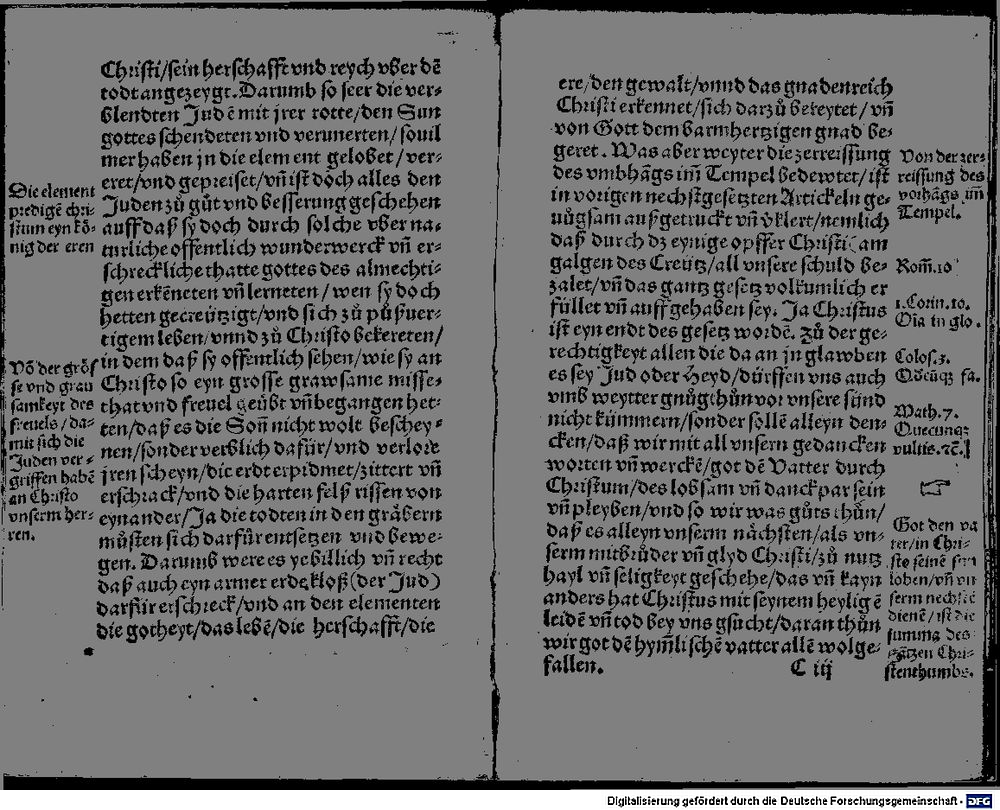 Christi/sein herschafft vnd reych vber dē
todt angezeygt. Darumb so seer die ver⸗
blendten Judē mit jrer rotte/den Sun
gottes schendeten vnd verunerten/souil
mer haben jn die element gelobet/ver⸗
eret/vnd gepreiset/vñ ist doch alles den
Juden zů gůt vnd besserung geschehen
auff daß sy doch durch solche vber na⸗
turliche offentlich wunderwerck vñ er⸗
schreckliche thatte gottes des almechti⸗
gen erkēneten vñ lerneten/wen sy doch
hetten gecreützigt/vnd sich zů půßuer⸗
tigem leben/vnnd zů Christo bekereten/
in dem daß sy offentlich sehen/wie sy an
Christo so eyn grosse grawsame misse⸗
that vnd freuel geübt vñ begangen het⸗
ten/daß es die Soñ nicht wolt beschey⸗
nen/sonder verblich dafür/vnd verlore
jren scheyn/die erdt erpidmet/zittert vñ
erschrack/vnd die harten felß rissen von
eynander/Ja die todten in den gräbern
můsten sich darfür entsetzen vnd bewe⸗
gen. Darumb were es ye billich vñ recht
daß auch eyn armer erdēkloß (der Jud)
darfür erschreck/vnd an den elementen
die gotheyt/das lebē/die herschafft/die
Die element
predigē chri⸗
stum eyn kö⸗
nig der eren
Võ der grös
se vnd grau
samkeyt des
freuels/da⸗
mit sich die
Juden ver⸗
griffen habē
an Christo
vnserm her⸗
ren.
ere/den gewalt/vnnd das gnadenreich
Christi erkennet/sich darzů bereytet/vñ
von Gott dem barmhertzigen gnad be⸗
geret. Was aber weyter die zerreissung
des vmbhägs im Tempel bedewtet/ist
in vorigen nechstgesetzten Artickeln ge⸗
nůgsam außgetruckt vñ v̊klert/nemlich
daß durch dz eynige opffer Christi am
galgen des Creütz/all vnsere schuld be⸗
zalet/vñ das gantz gesetz volkumlich er
füllet vñ auffgehaben sey. Ja Christus
ist eyn endt des gesetz wordē. Zů der ge⸗
rechtigkeyt allen die da an jn glawben
es sey Jud oder Heyd/dürffen vns auch
vmb weytter gnůgthůn vor vnsere sünd
nicht kümmern/sonder sollē alleyn den⸗
cken/daß wir mit all vnsern gedancken
worten vñ werckē/got dē Vatter durch
Christum/des lobsam vñ danckpar sein
vñ pleyben/vnd so wir was gůts thůn/
daß es alleyn vnserm nächsten/als vn⸗
serm mitbrůder vñ glyd Christi/zů nutz
hayl vñ seligkeyt geschehe/das vñ kayn
anders hat Christus mit seynem heyligē
leidē vñ tod bey vns gsucht/daran thůn
wir got dē hym̃lischē vatter allē wolge⸗
fallen.
C iij
Von der zer⸗
reissung des
vorhägs im̃
Tempel.
Rom̃.10
1.Corin.10.
Oīa in glo.
Colos.3.
Oēcūq; fa.
Math.7.
Quecunqz
vultis.⁊c̄.
☞
Got den va
ter/in Chri⸗
sto seinē sun
loben/vñ vn
serm nechstē
dienē/ist die
summa des
gätzen Chri⸗
stenthumbs.
Digitalisierung gefördert durch die Deutsche Forschungsgemeinschaft - DFG